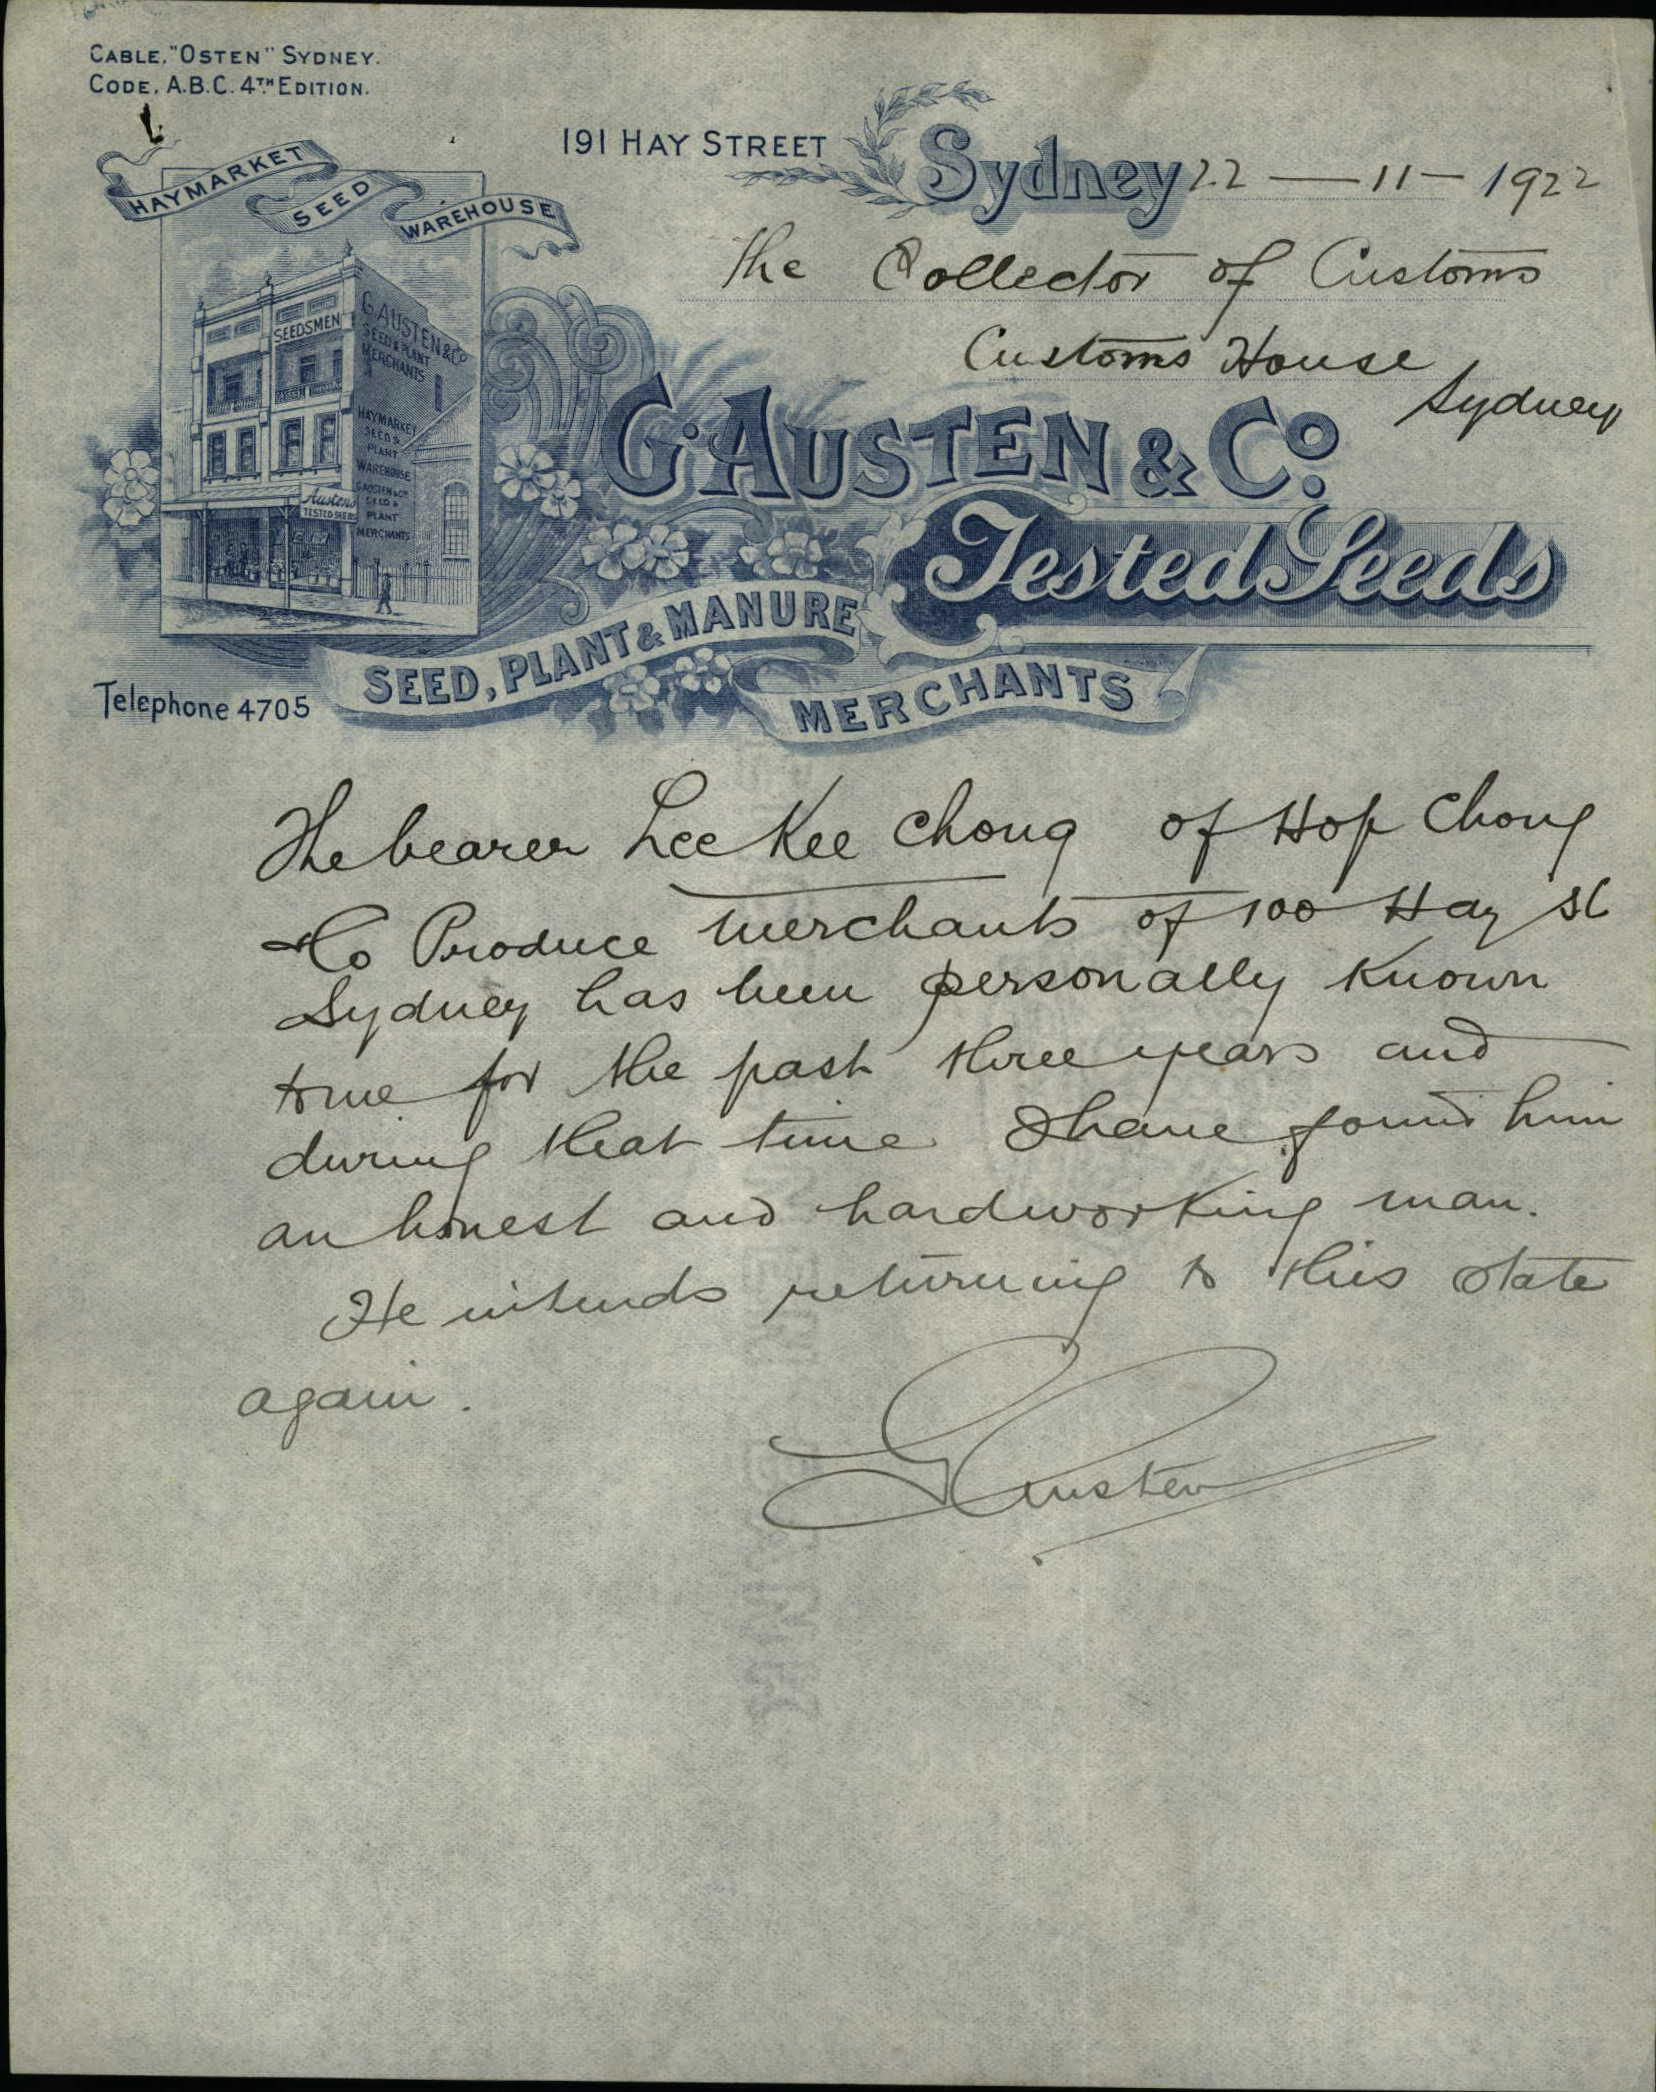 CABLE, "OSTEN" SYDNEY.
CODE, A.B.C. 4TH EDITION.
HAYMARKET SEED WAREHOUSE
191 HAY STREET Sydney 22 — 11 — 1922
The Collector of Customs
Customs House
Sydney
SEEDSMEN
G. AUSTEN & Co
SEED & PLANT
MERCHANTS
HAYMARKET
SEED &
PLANT
WAREHOUSE
G AUSTEN & Co
SEED &
PLANT
MERCHANTS
Austens
TESTED SEEDS
G. AUSTEN & Co.
Tested Seeds
SEED, PLANT & MANURE
MERCHANTS
Telephone 4705
The bearer Lee Kee Chong of Hop Chong
& Co Produce merchants of 100 Hay St
Sydney has been personally known
to me for the past three years and
during that time I have found him
an honest and hardworking man.
He intends returning to this state
again.
G Austen